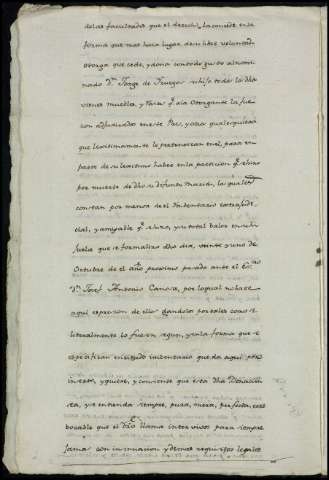 de las facultades que el derecho la concede en la
forma que mas haia lugar de su libre voluntad
otorga que cede, y dona con todo gusto al nomi-
nado Dn. Jorge de su hijo todos los dhos
vienes muebles, y raices qe. a la Otorgante la fue-
ron adjudicados en este Pais, y otra qualesquiera
que legitimamte. le pertenezcan en el, para en
parte de su lexitimo haber en la particion qe. se hizo
por muerte de dho su difunto marido, los quales
constan por menor de el Imbentario extrajudi-
cial, y amigable qe. se hizo, y su total balor en
que se formalizo dho dia, veinte y uno de
Octubre de el año proximo pasado ante el Esno.
Dn. Josef Antonio Canosa, por lo qual no hace
aqui expresion de ellos dandolos por tales como si
literalmente lo fueran segun, y en la forma que se
especifican en citado inventario que da aqui por
inserto, y quiere, y consiente que esta dha Donacion
sea, y se entienda siempre, pura, mera, perfecta, irre-
bocable que el dro. llama intervivos para siempre
jamas con insinuacion, y demas requisitos legales